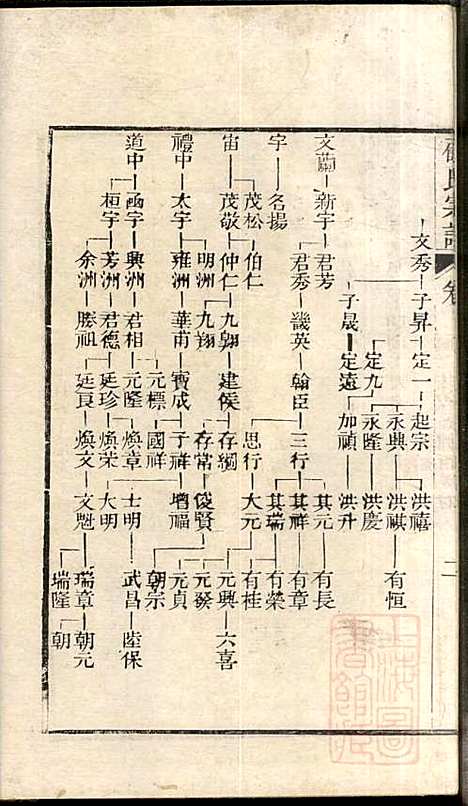 氏宗譜
卷
二
文秀 子昇 定一 起宗 洪禧
永興 洪祺 有恒
定九 永隆 洪慶
子晟 定遠 加禎 洪升
文蘭 新宇 君芳
君秀 畿英 翰臣 三行 其元 有長
其祥 有章
其瑞 有榮
宇 名揚
茂松 伯仁
思行 大元 有桂
宙 茂敬 仲仁 九翱 建侯 存澗 俊賢 元興 六喜
明洲 九翔
存常
元發
元貞
禮中 太宇 雍洲 華甫 寶成 子祥 增福
元標 國祥
朝宗
道中 函宇 興洲 君相 元隆 煥章 士明 武昌 陸保
桓宇 芳洲 君德 廷珍 煥荣 大明
余洲 勝祖 廷良 煥文 文魁 瑞章 朝元
瑞隆 朝
上海圖書館藏